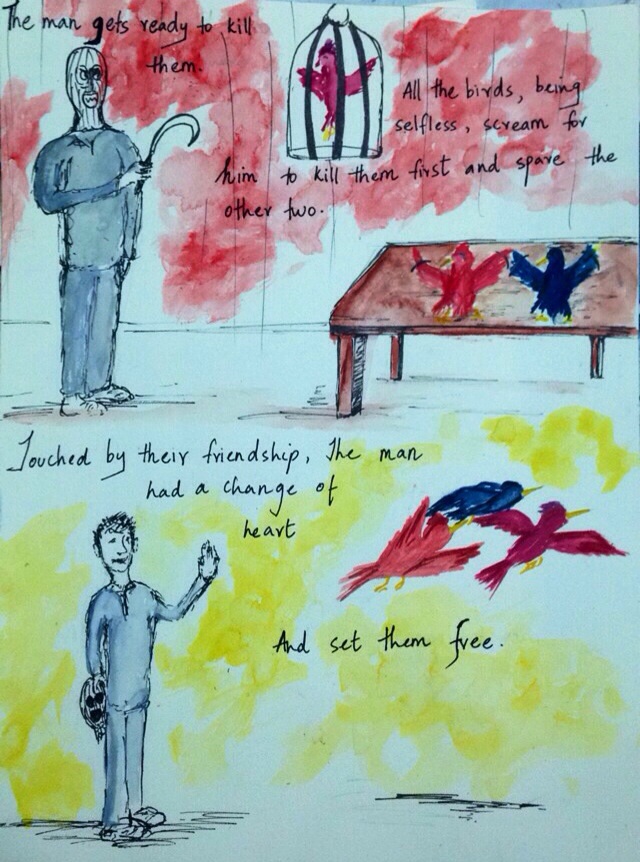 The man gets ready to kill
them.
All the birds, being
selfless, scream for
him to kill them first and spare the
other two.
Touched by their friendship, The man
had a change of
heart
And set them free.